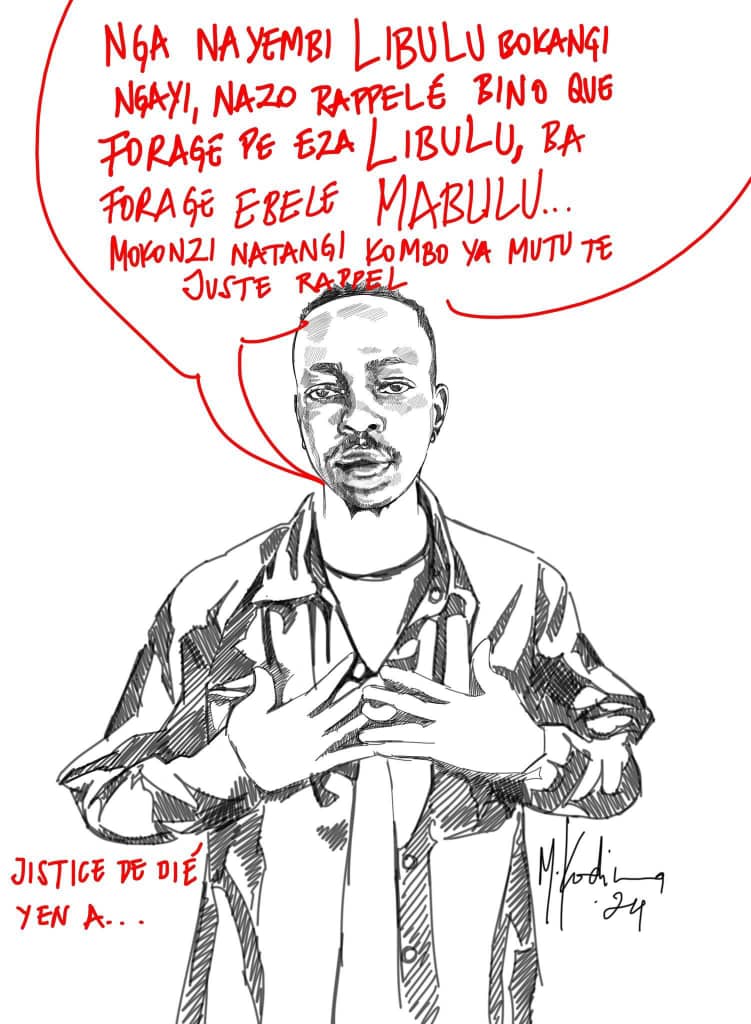 NGA NAYEMBI LIBULU BOKANGI
NGAYI, NAZO RAPPELÉ BINO QUE
FORAGE PE EZA LIBULU, BA
FORAGE EBELE MABULU...
MOKONZI NATANGI KOMBO YA MUTU TE
JUSTE RAPPEL
JISTICE DE DIÉ
YEN A...
.24